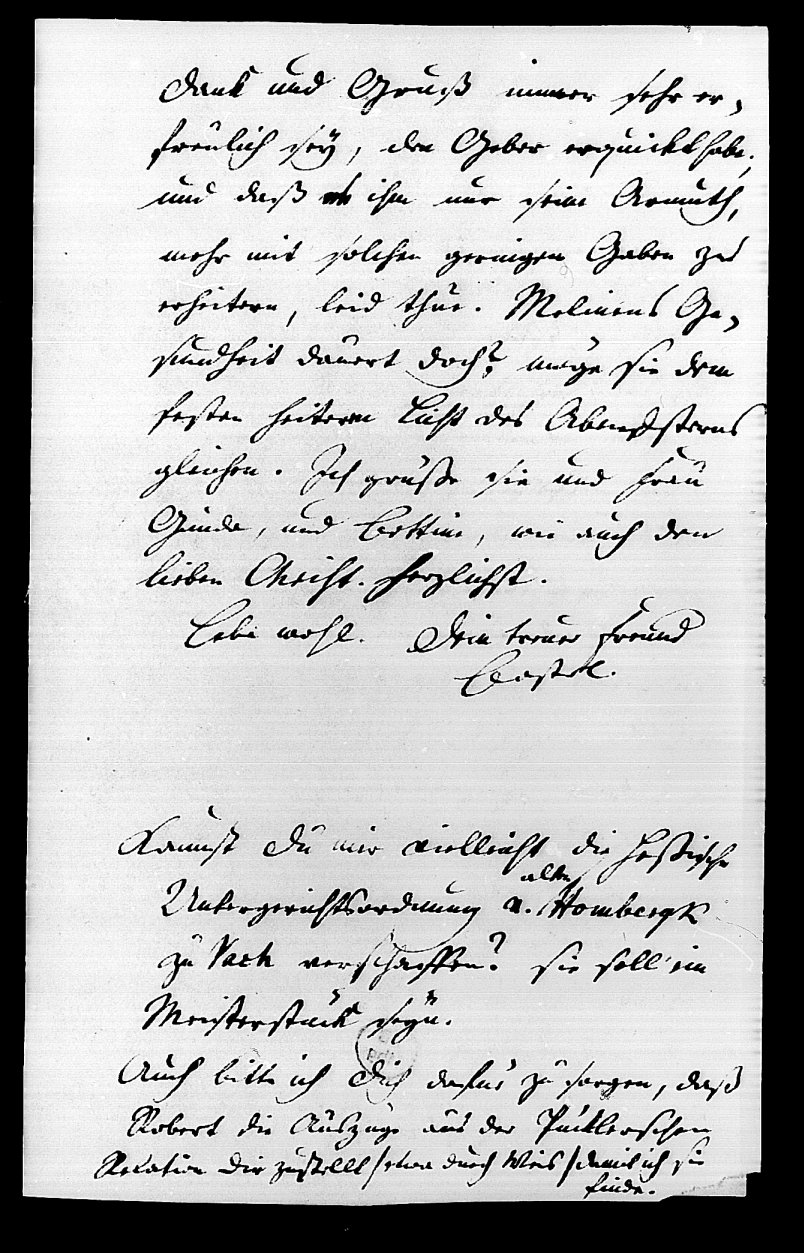 Dank und Gruß immer sehr er-
freulich sey, den Geber erquickt habe;
und daß ihm nur seine Armuth,
mehr mit solchen geringen Gaben zu
erheitern, leid thue. Melinens Ge-
sundheit dauert doch? möge sie dem
festen heitern Licht des Abendsterns
gleichen. Ich grüße sie und Frau
Gunda, und Bettine, wie auch den
lieben Christ. herzlichst.
Lebe wohl. Dein treuer Freund
Kannst Du mir vielleicht die heßische
alten
Untergerichtsordnung v. Hombergk
zu Vach verschaffen? sie soll ein
Meisterstück seyn.
Auch bitte ich Dich dafür zu sorgen, daß
Robert die Auszüge aus der Pücklerschen
Relation Dir zustellt /etwa durch Weis/ damit ich sie
finde.